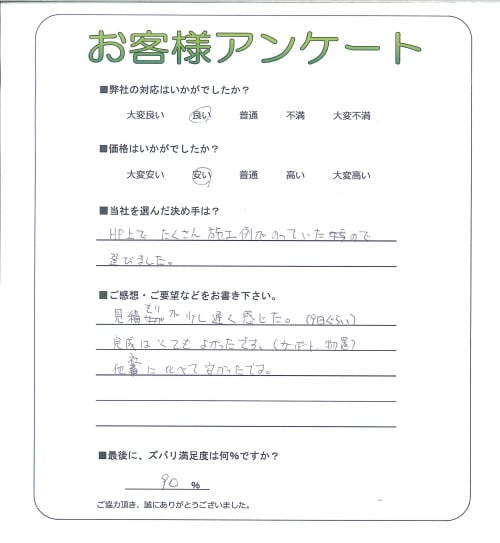 お客様アンケート
■弊社の対応はいかがでしたか？
大変良い 良い 普通 不満 大変不満
■価格はいかがでしたか？
大変安い 安い 普通 高い 大変高い
■当社を選んだ決め手は？
HP上で たくさん 施工例がのっていた ので
選びました。
■ご感想・ご要望などをお書き下さい。
見積もりが 少し遅く感じた。(9日ぐらい)
完成はとてもよかったです。(カーポート、物置)
他社に比べて安かったです。
■最後に、ズバリ満足度は何％ですか？
90 ％
ご協力頂き、誠にありがとうございました。